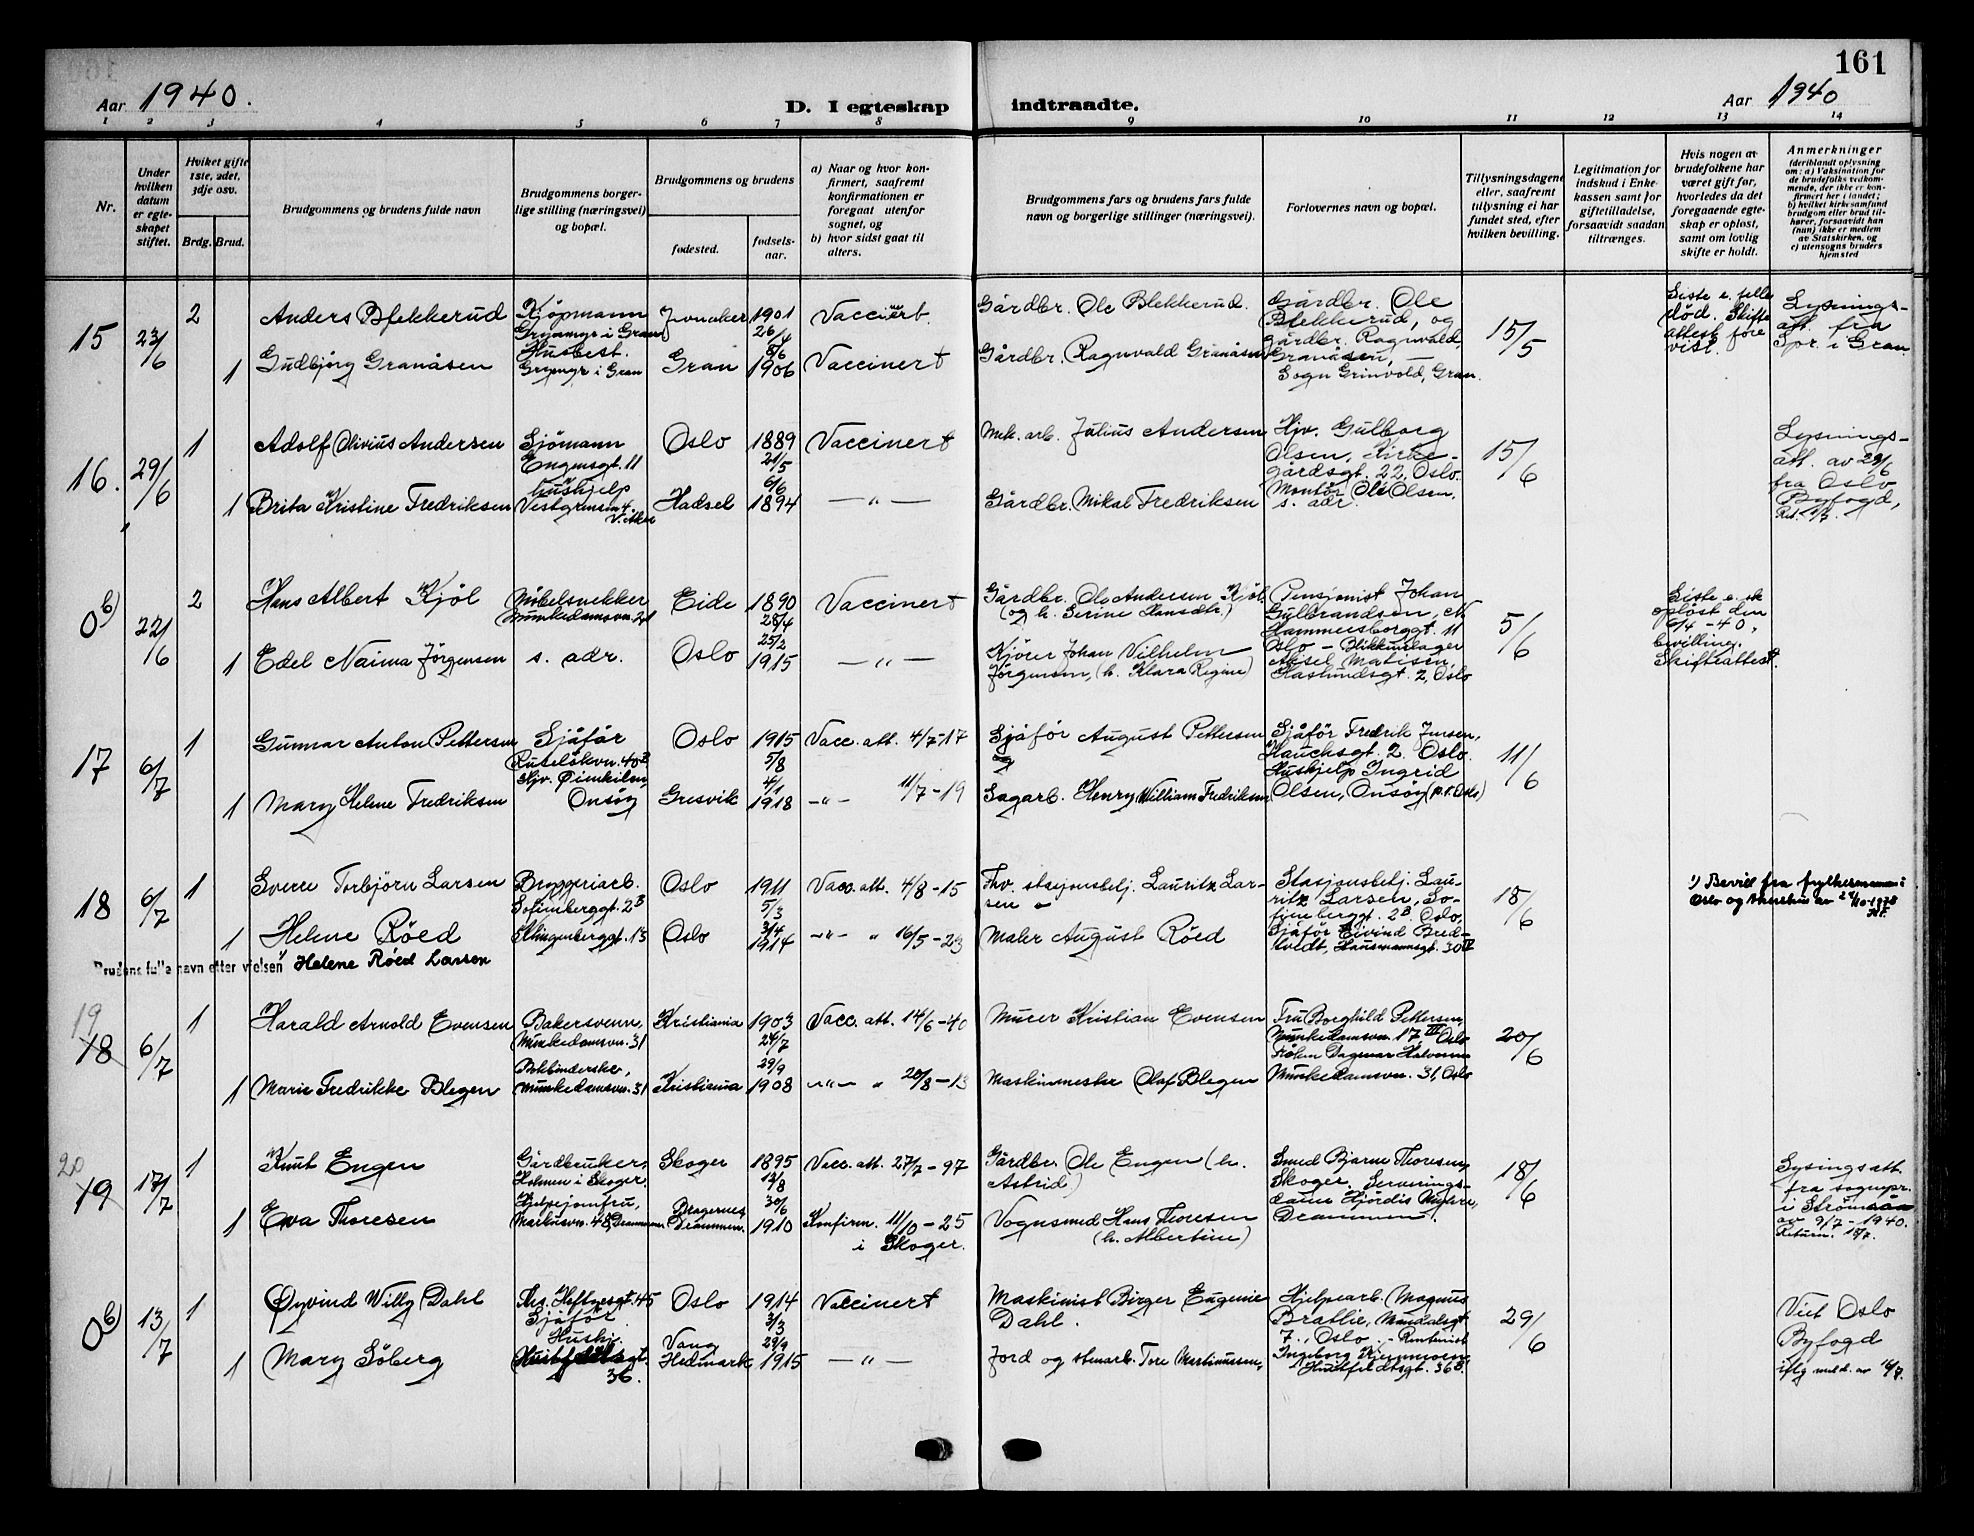 161
Aar 1940.
D. I egteskap indtraadte.
Aar 1940
1 2 3 4 5 6 7 8 9 10 11 12 13 14
Nr.
Under hvilken datum er egteskapet stiftet.
Hvilket gifte 1ste, 2det, 3dje osv.
Brdg. Brud.
Brudgommens og brudens fulde navn
Brudgommens borgerlige stilling (næringsvei) og bopæl.
Brudgommens og brudens
fødested.
fødselsaar.
a) Naar og hvor konfirmert, saafremt konfirmationen er foregaat utenfor sognet, og
b) hvor sidst gaat til alters.
Brudgommens fars og brudens fars fulde navn og borgerlige stillinger (næringsvei).
Forlovernes navn og bopæl.
Tillysningsdagene eller, saafremt tillysning ei har fundet sted, efter hvilken bevilling.
Legitimation for indskud i Enkekassen samt for giftetilladelse, forsaavidt saadan tiltrænges.
Hvis nogen av brudefolkene har været gift før, hvorledes da det foregaaende egteskap er opløst, samt om lovlig skifte er holdt.
Anmerkninger (deriblandt oplysning om: a) Vaksination for de brudefolks vedkommende, der ikke er konfirmert her i landet; b) hvilket kirkesamfund brudgom eller brud tilhører, forsaavidt han (hun) ikke er medlem av Statskirken, og c) utensogns bruders hjemsted
15 23/6 2 Anders Blekkerud Kjøpmann Grymyr i Gran Jevnaker 1901 26/4 Vaccinert Gårdbr. Ole Blekkerud. Gårdbr. Ole Blekkerud, og gårdbr. Ragnvald Granåsen, — Sogn Grinvold, Gran. 15/5 Siste e. felle død. Skifteattest forevist. Lysningsatt. fra Spr. i Gran
1 Gudbjørg Granåsen Husbest. Grymyr i Gran Gran 8/6 1906 Vaccinert Gårdbr. Ragnvald Granåsen
16. 29/6 1 Adolf Olivius Andersen Sjömann Engensgt. 11 Oslo 1889 21/5 Vaccinert Mek. arb. Julius Andersen Hjv. Gulborg Olsen, Kirkegårdsgt. 22, Oslo. Montör Ole Olsen, s. adr. 15/6 Lysningsatt. av 29/6 fra Oslo Byfogd,
1 Brita Kristine Fredriksen Hushjelp Vestgrensen 4. V. Aker Hadsel 6/6 1894 — " — Gårdbr. Mikal Fredriksen
0 b) 22/6 2 Hans Albert Kjöl Möbelsnekker Munkedamsvn. 21 Eide 1890 28/4 Vaccinert Gårdbr. Ole Andersen Kjöl (og h. Serine Hansdtr.) Pensjonist Johan Gulbrandsen, N. Hammersborggt. 11 Oslo – Blikkenslager Aksel Matisen, Haslundsgt. 2, Oslo 5/6 Siste e. sk opløst den 6/4 -40, bevilling. Skifteattest.
1 Edel Naima Jörgensen s. adr. Oslo 25/2 1915 — " — Kjörer Johan Vilhelm Jörgensen, (h. Klara Regine)
17 6/7 1 Gunnar Anton Pettersen Sjåför Ruselökvn. 40B Oslo 1915 5/8 Vacc. att. 4/7-17 Sjåför August Pettersen og Sjåför Fredrik Jensen, Hauchsgt. 2. Oslo. Hushjelp Ingrid Olsen, Onsöy (p.t. Oslo) 11/6
1 Mary Helene Fredriksen Hjv. Øienkilen, Onsöy Gresvik 4/1 1918 – " – 11/7-19 Sagarb. Henry William Fredriksen,
18 6/7 1 Sverre Torbjörn Larsen Bryggeriarb. Sofienberggt. 2B Oslo 1911 5/3 Vacc. att. 4/8-15 Fhv. stasjonsbetj. Lauritz Larsen Stasjonsbetj. Lauritz Larsen, Sofienberggt. 2B. Oslo, Sjåför Eivind Bredtvedt, Hausmannsgt. 30IV 18/6 1) Bevill fra fylkesmannen i Oslo og Akershus av 24/10-1978
1 Helene Röed Ellingenberggt. 13 Oslo 3/4 1914 – " – " 16/5-23 Maler August Röed
Brudens fulle navn etter vielsen 1) Helene Röed Larsen
19 18 6/7 1 Harald Arnold Evensen Bakersvenn, Munkedamsvn. 31 Kristiania 1903 24/7 Vacc. att. 14/6-40 Murer Kristian Evensen Fru Borghild Pettersen, Munkedamsvn. 17III Oslo Fröken Dagmar Halvorsen Munkedamsvn. 31, Oslo 20/6
1 Marie Fredrikke Blegen Bokbinderske, Munkedamsvn. 31 Kristiania 29/9 1908 – " – " 20/8-13 Maskinmester Olaf Blegen
20 19 17/7 1 Knut Engen Gårdbruker, Holmen i Skoger. Skoger 1895 12/8 Vacc. att. 27/7-97 Gårdbr. Ole Engen (h. Astrid) Smed Bjarne Thoresen, Skoger. Serveringsdame Hjördis Myhre, Drammen. 18/6 Lysingsatt. fra sognepr. i Strömsö av 9/7-1940.
1 Eva Thoresen Hjelpejomfru, Drammen. Bragernes Drammen. 30/6 1910 Konfirm. 11/10-25 i Skoger. Vognsmed Hans Thoresen (h. Albertine)
0 b) 13/7 1 Øyvind Willy Dahl Ths. Heftyesgt. 45 Sjåför Oslo 1914 3/3 Vaccinert Maskinist Birger Eugenie Dahl. Hjelpearb. Magnus Bratlie, 7., Oslo. – Rentenist Ingeborg Huitfeldtsgt. 36B. 29/6 Viet Oslo Byfogd iflg. meld. av 16/7.
1 Mary Söberg Hushj. Huitfeldtsgt. 36. Vang Hedmark 29/9 1915 — " — Jord og stenarb. Tore Martinussen,